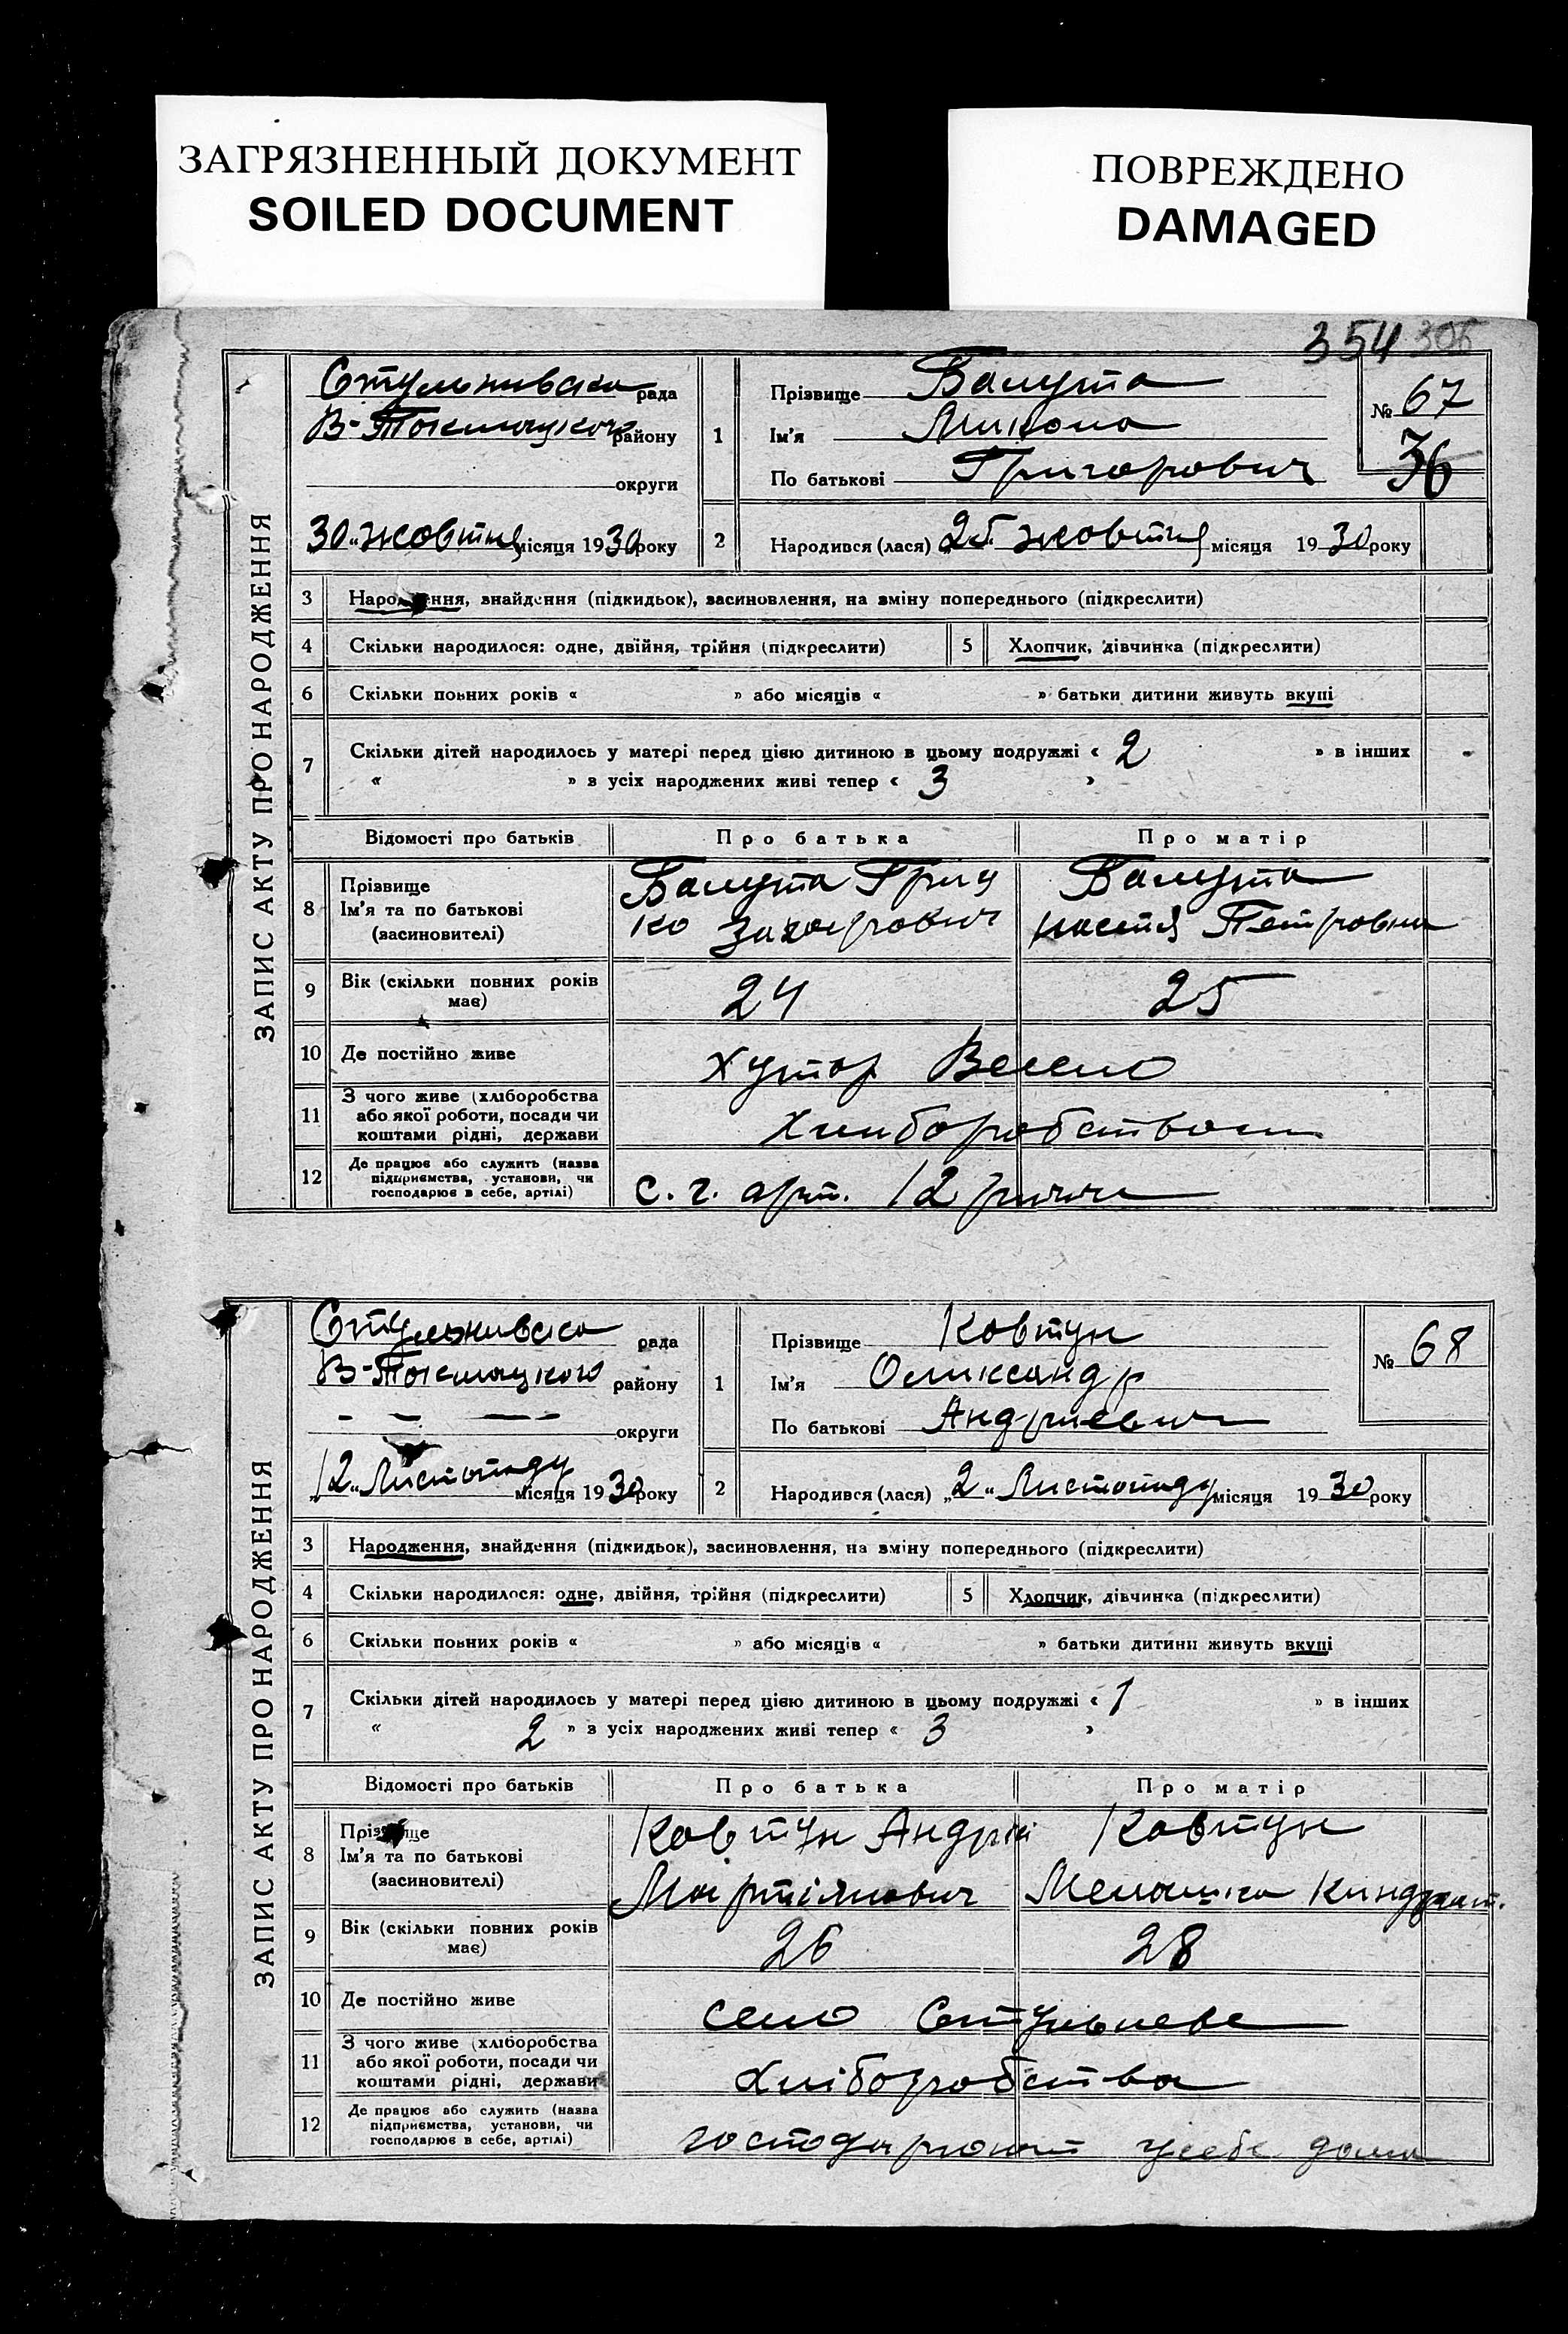 ЗАГРЯЗНЕННЫЙ ДОКУМЕНТ
SOILED DOCUMENT
ПОВРЕЖДЕНО
DAMAGED
354 306
ЗАПИС АКТУ ПРО НАРОДЖЕННЯ
рада
В-Токмацкого району
округи
30 „ жовтня місяця 1930 року
1
Прізвище Балута
Ім'я Микола
По батькові Григорович
№ 67
36
2 Народився (лася) 25 жовтня місяця 1930 року
3 Народження, знайдення (підкидьок), засиновлення, на зміну попереднього (підкреслити)
4 Скільки народилося: одне, двійня, трійня (підкреслити) 5 Хлопчик, дівчинка (підкреслити)
6 Скільки повних років « » або місяців « » батьки дитини живуть вкупі
7 Скільки дітей народилось у матері перед цією дитиною в цьому подружжі « 2 » в інших
« » з усіх народжених живі тепер « 3 »
Відомості про батьків Про батька Про матір
8 Прізвище
Ім'я та по батькові
(засиновителі)
Балута Гриц
ко Захарович
Балута
Настя Петровна
9 Вік (скільки повних років має) 24 25
10 Де постійно живе хутор Весело
11 З чого живе (хліборобства
або якої роботи, посади чи
коштами рідні, держави
Хлиборобством
12 Де працює або служить (назва
підприємства, установи, чи
господарює в себе, артілі)
с. г. арт. 12
ЗАПИС АКТУ ПРО НАРОДЖЕННЯ
рада
В-Токмацкого району
— — — округи
„12„ Листопаду місяця 1930 року
1
Прізвище Ковтун
Ім'я Олександр
По батькові Андриевич
№ 68
2 Народився (лася) „2„ Листопаду місяця 1930 року
3 Народження, знайдення (підкидьок), засиновлення, на зміну попереднього (підкреслити)
4 Скільки народилося: одне, двійня, трійня (підкреслити) 5 Хлопчик, дівчинка (підкреслити)
6 Скільки повних років « » або місяців « » батьки дитини живуть вкупі
7 Скільки дітей народилось у матері перед цією дитиною в цьому подружжі « 1 » в інших
« 2 » з усіх народжених живі тепер « 3 »
Відомості про батьків Про батька Про матір
8 Прізвище
Ім'я та по батькові
(засиновителі)
Ковтун Андрій
Ковтун
Меланка Киндрат.
9 Вік (скільки повних років має) 26 28
10 Де постійно живе село
11 З чого живе (хліборобства
або якої роботи, посади чи
коштами рідні, держави
Хліборобства
12 Де працює або служить (назва
підприємства, установи, чи
господарює в себе, артілі)
господарюют усебе дома